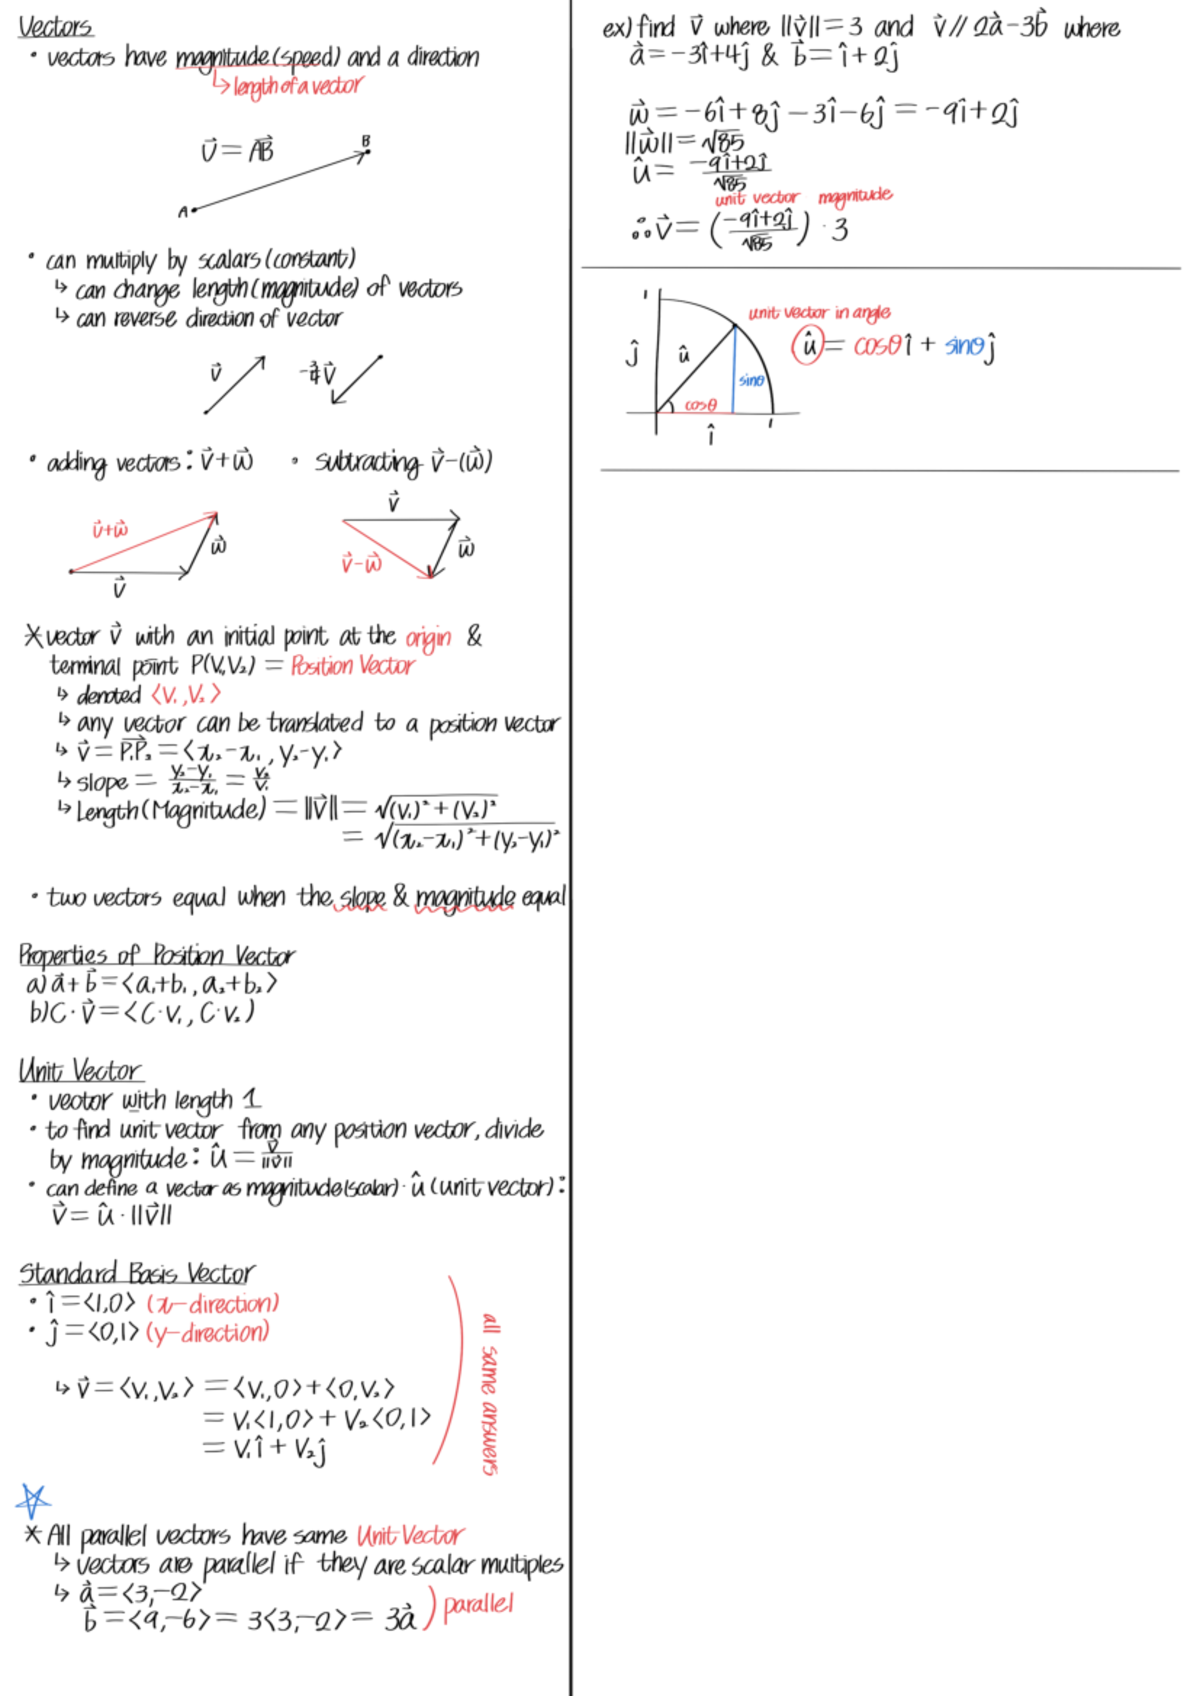 Vectors
• vectors have magnitude(speed) and a direction
↳ length of a vector
v⃗ = AB⃗
B
A
• can multiply by scalars (constant)
↳ can change length (magnitude) of vectors
↳ can reverse direction of vector
v⃗
v⃗
• adding vectors: v⃗+w⃗ • subtracting v⃗-(w⃗)
v⃗+w⃗
w⃗
v⃗
v⃗
w⃗
v⃗-w⃗
* vector v⃗ with an initial point at the origin &
terminal point P(V₁,V₂) = Position Vector
↳ denoted <V₁,V₂>
↳ any vector can be translated to a position vector
↳ v⃗ = P₁P₂⃗ = <x₂-x₁, y₂-y₁>
↳ slope = (y₂-y₁)/(x₂-x₁) = v₂/v₁
↳ Length(Magnitude) = ||v⃗|| = √((V₁)²+(V₂)²)
= √((x₂-x₁)²+(y₂-y₁)²)
• two vectors equal when the slope & magnitude equal
Properties of Position Vector
a) a⃗+b⃗ = <a₁+b₁, a₂+b₂>
b) C·v⃗ = <C·v₁, C·v₂)
Unit Vector
• vector with length 1
• to find unit vector from any position vector, divide
by magnitude: û = v⃗/||v⃗||
• can define a vector as magnitude(scalar)·û (unit vector):
v⃗ = û·||v⃗||
Standard Basis Vector
• î = <1,0> (x-direction)
• ĵ = <0,1> (y-direction)
↳ v⃗ = <V₁,V₂> = <V₁,0>+<0,V₂>
= V₁<1,0> + V₂<0,1>
= V₁î + V₂ĵ
all same answers
* All parallel vectors have same Unit Vector
↳ vectors are parallel if they are scalar multiples
↳ a⃗ = <3,-2>
b⃗ = <9,-6> = 3<3,-2> = 3a⃗ ) parallel
ex) find v⃗ where ||v⃗|| = 3 and v⃗ // 2a⃗-3b⃗ where
a⃗ = -3î+4ĵ & b⃗ = î+2ĵ
w⃗ = -6î+8ĵ-3î-6ĵ = -9î+2ĵ
||w⃗|| = √85
û = (-9î+2ĵ)/√85
unit vector magnitude
∴ v⃗ = ((-9î+2ĵ)/√85) · 3
1
unit vector in angle
ĵ û û = cosθ î + sinθ ĵ
sinθ
cosθ
1
î